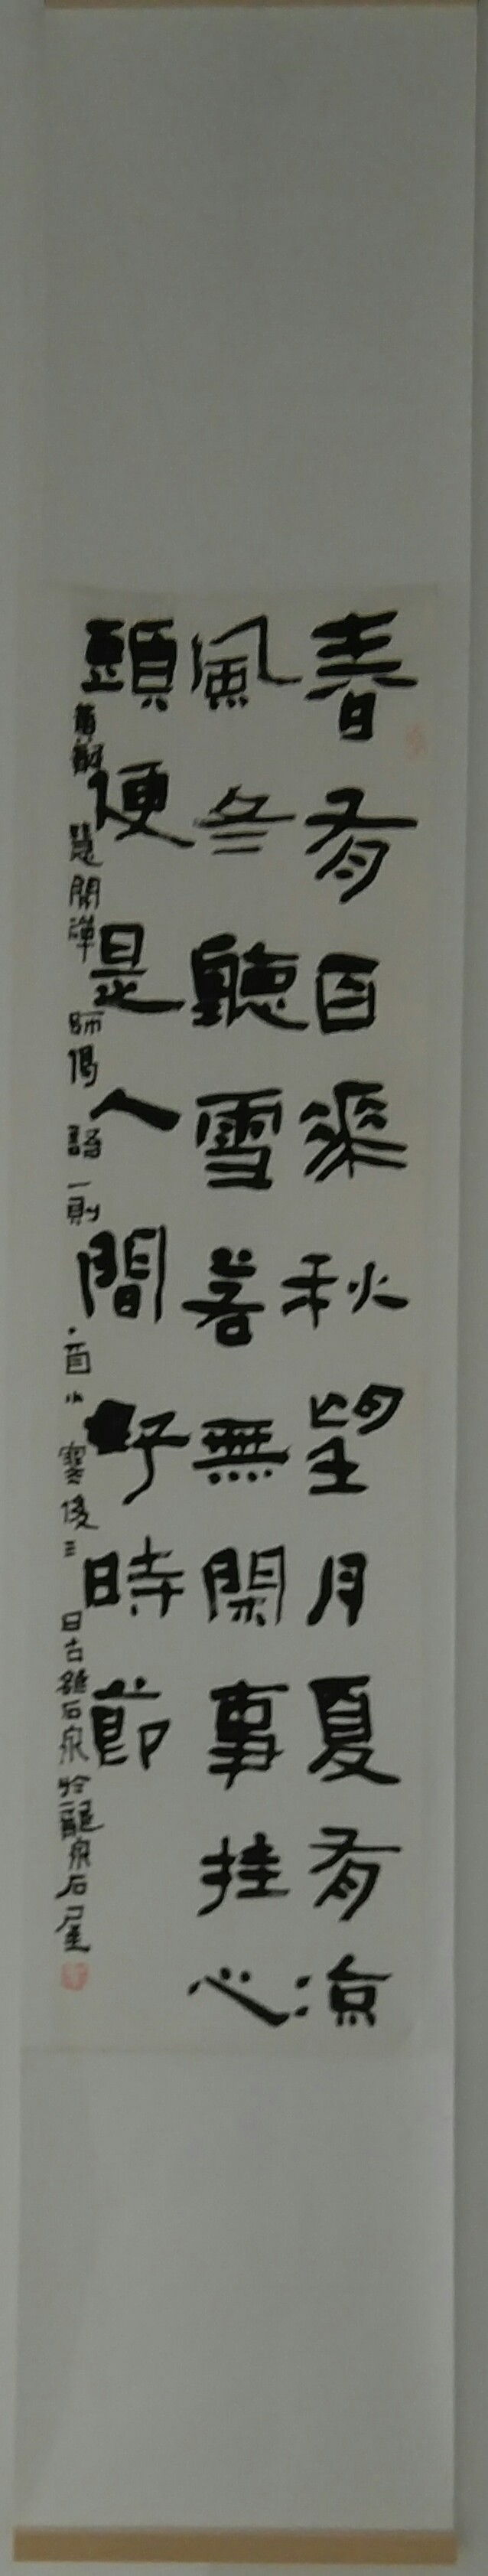 春有百花秋望月夏有涼
風冬聽雪若無閑事挂心
頭便是人間好時節
慧開禪師偈語一則 寒後三日古 石泉於龍泉石屋